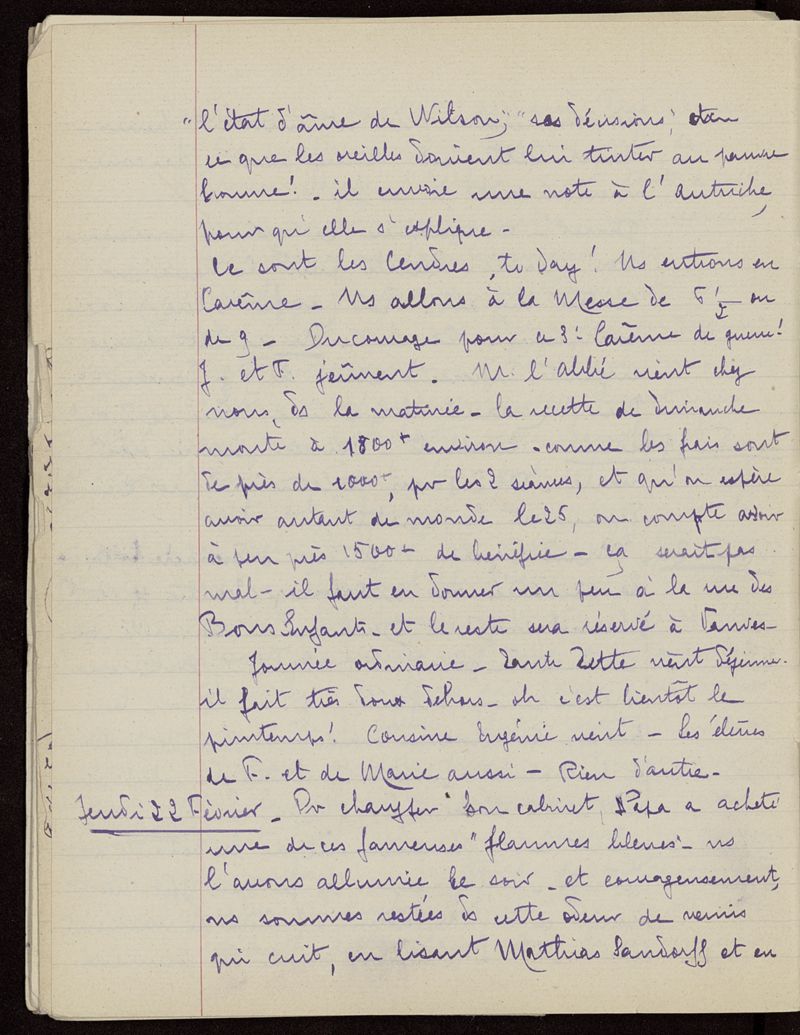 "l'état d'âme de Wilson," "ses décisions",
ce que les oreilles doivent lui tinter au pauvre
homme! - il envoie une note à l'Autriche,
pour qu'elle s'explique -
Ce sont les Cendres, to day! Ns entrons en
Carême - Ns allons à la Messe de 7 ½ ou
de 9 - Du courage pour ce 3e Carême de guerre!
J. et F. jeûnent - M. l'Abbé vient chez
nous, ds la matinée - la recette de dimanche
monte à 1800+ environ - comme les frais sont
de près de 1000+, pr les 2 séances, et qu'on espère
avoir autant de monde le 25, on compte avoir
à peu près 1500+ de bénéfice - ça serait pas
mal - il faut en donner un peu à la rue des
Bons Enfants - et le reste sera réservé à Vanves -
Journée ordinaire - Tante Zette vient déjeuner -
il fait très doux dehors - oh c'est bientôt le
printemps! Cousine Eugénie vient - Les élèves
de F. et de Marie aussi - Rien d'autre -
Jeudi 22 Février - Pr chauffer son cabinet, Papa a acheté
une de ces fameuses "flammes bleues" - ns
l'avons allumée le soir - et courageusement,
ns sommes restées ds cette odeur de vernis
qui cuit, en lisant Mathias Sandorff et en